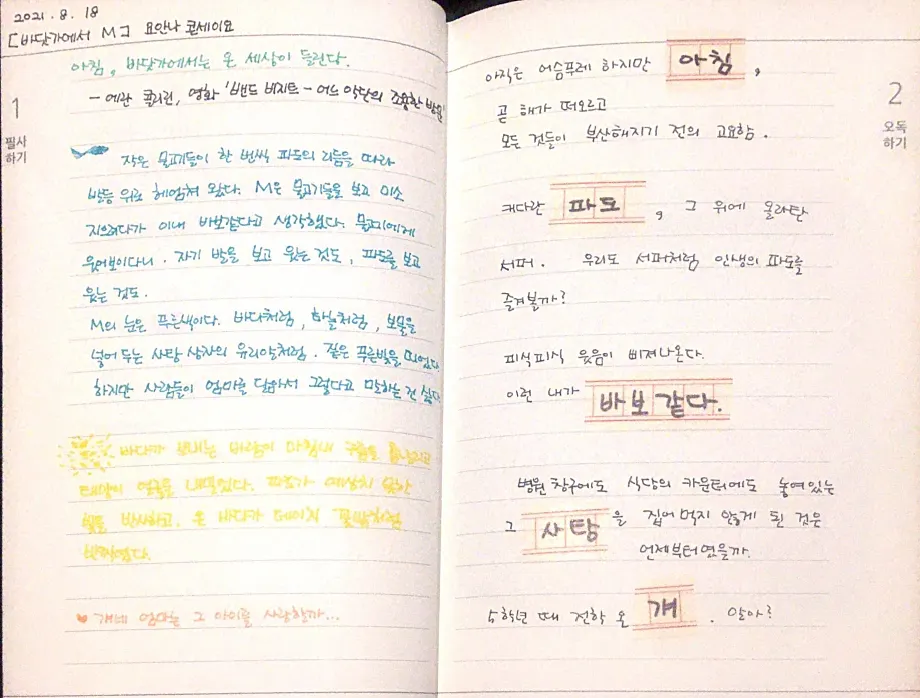 2021. 8. 18
[바닷가에서 M] 요안나 콘세이요
아침, 바닷가에서는 온 세상이 들린다.
- 에란 콜리린, 영화 '밴드 비지트 - 어느 악단의 조용한 방문'
1
필사
하기
작은 물고기들이 한 번씩 파도의 리듬을 따라
발등 위로 헤엄쳐 왔다. M은 물고기들을 보고 미소
지으려다가 이내 바보같다고 생각했다. 물고기에게
웃어보이다니. 자기 발을 보고 웃는 것도, 파도를 보고
웃는 것도.
M의 눈은 푸른색이다. 바다처럼, 하늘처럼, 보물을
넣어 두는 사탕 상자의 유리알처럼. 짙은 푸른빛을 띠었다.
하지만 사람들이 엄마를 닮아서 그렇다고 말하는 건 싫다
바다가 보내는 바람이 마침내 구름을
태양이 얼굴을 내밀었다. 파도가 예상치 못한
빛을 반사하고, 온 바다가 데이지 꽃밭처럼
♥ 걔네 엄마는 그 아이를 사랑할까...
2
오독
하기
아직은 어슴푸레 하지만 아침,
곧 해가 떠오르고
모든 것들이 부산해지기 전의 고요함.
커다란 파도, 그 위에 올라탄
서퍼. 우리도 서퍼처럼 인생의 파도를
즐겨볼까?
피식피식 웃음이 삐져나온다.
이런 내가 바보같다.
병원 창구에도 식당의 카운터에도 놓여있는
그 사탕을 집어먹지 않게 된 것은
언제부터였을까.
5학년 때 전학 온 걔. 알아?